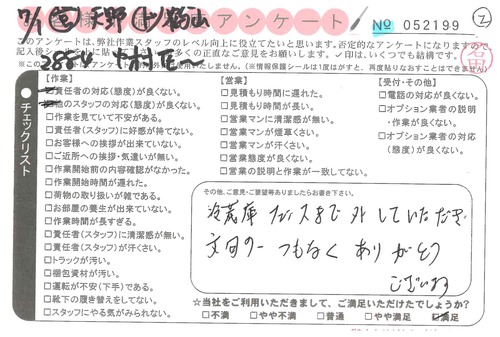 アンケート
№ 052199
このアンケートは、弊社作業スタッフのレベル向上に役立てたいと思います。否定的なアンケートになりますので
※このアンケート
(※情報保護シールは1度はがすと、再度貼りなおすことはできません)
チェックリスト
【作業】
□責任者の対応(態度)が良くない。
□他のスタッフの対応(態度)が良くない。
□作業を見ていて安心がある。
□責任者(スタッフ)に好感が持てない。
□お客様への挨拶が出来ていない。
□ご近所への挨拶・気遣いが無い。
□作業開始前の内容確認がなかった。
□作業開始時間が遅れた。
□荷物の取り扱いが雑である。
□お部屋の養生が出来ていない。
□作業時間が長すぎる。
□責任者(スタッフ)に清潔感が無い。
□責任者(スタッフ)が汗くさい。
□トラックが汚い。
□梱包資材が汚い。
□運転が不安(下手)である。
□靴下の履き替えをしてない。
□スタッフにやる気がみられない。
【営業】
□見積もり時間に遅れた。
□見積もり時間が長い。
□営業マンに清潔感が無い。
□営業マンが煙草くさい。
□営業マンが汗くさい。
□営業態度が良くない。
□営業の説明と作業が一致してない。
【受付・その他】
□電話の対応が良くない。
□オプション業者の説明
・作業が良くない。
□オプション業者の対応
(態度)が良くない。
その他、ご意見・ご要望等ありましたらお書き下さい。
冷蔵庫 ドアまで外していただき
文句の一つもなく ありがとう
ございます
☆当社をご利用いただきまして、ご満足いただけたでしょうか?
□不満 □やや不満 □普通 □やや満足 □満足